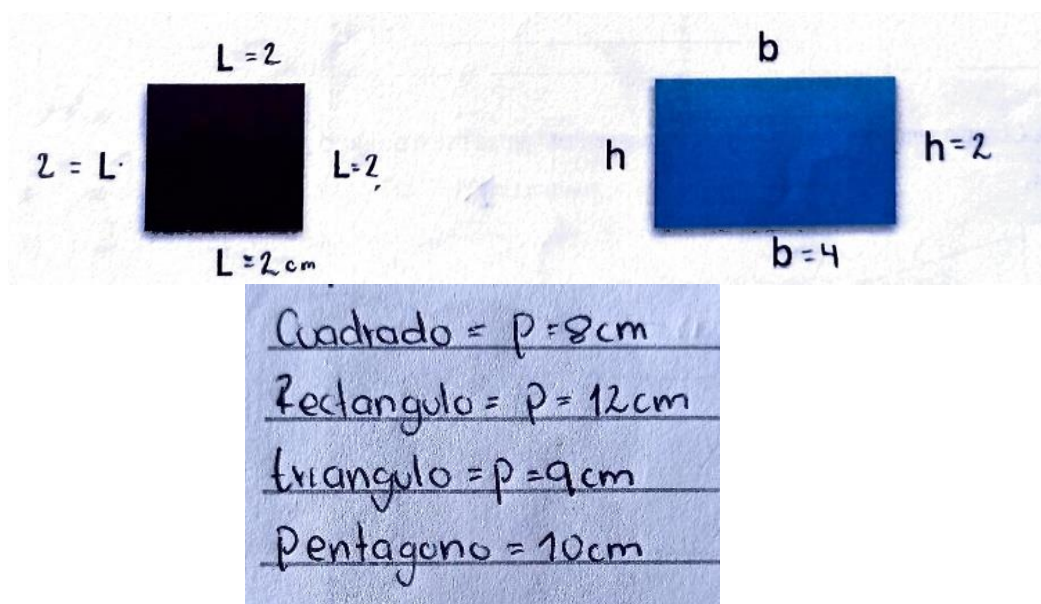 L = 2
b
2 = L.
L = 2
h
h = 2
L = 2 cm
b = 4
Cuadrado = p = 8cm
Rectangulo = p = 12cm
triangulo = p = 9cm
Pentagono = 10cm